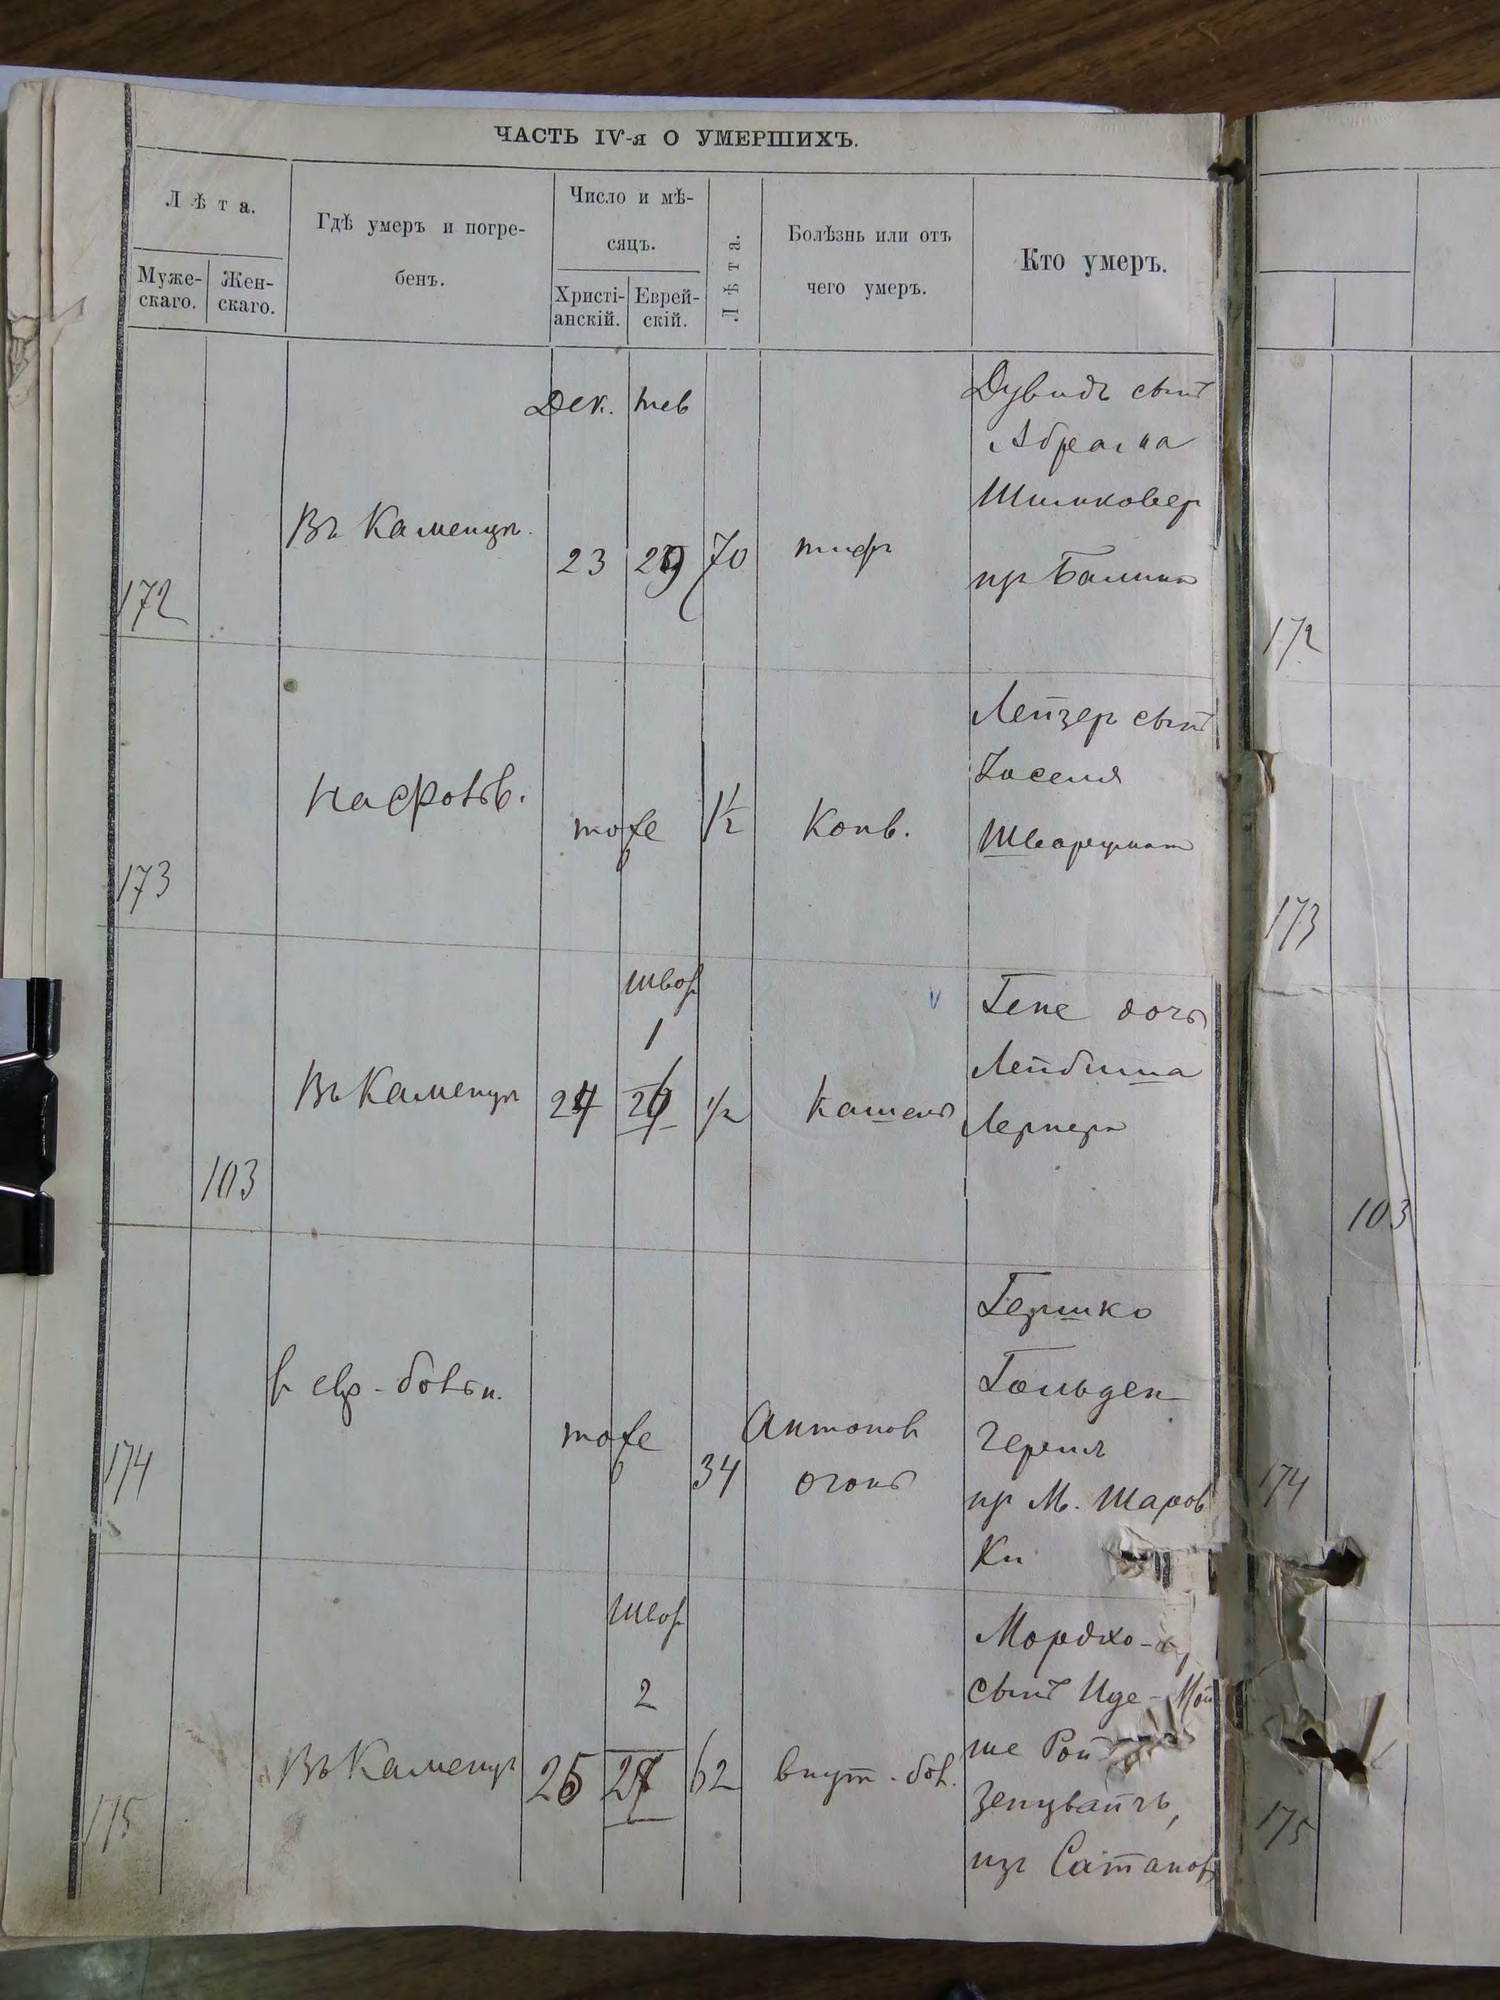 ЧАСТЬ IV-я О УМЕРШИХЪ.
Лѣта.
Муже-
скаго.
Жен-
скаго.
Гдѣ умеръ и погре-
бенъ.
Число и мѣ-
сяцъ.
Христі-
анскій.
Еврей-
скій.
Лѣта.
Болѣзнь или отъ
чего умеръ.
Кто умеръ.
172
Въ Каменцѣ.
Дек.
23
тев
29
70
тифъ
Дувидъ сынъ
Абрама
Шимковер
172
173
тоже
1½
Конв.
Лейзеръ сынъ
Іоселя
Шварцман
173
103
Въ Каменцѣ
24
швот
1
½
Кашель
Гене дочь
Лейбиша
Лернера
103
174
в евр-больн.
тоже
34
Антонов
огонь
Гершко
Гольден
гершъ
из М. Шаров
ки
174
175
Въ Каменцѣ
25
швот
2
62
внут-бол.
Мордко-
сынъ Ице-Мой
ше Рой
зенцвайгъ,
изъ Сатанов
175